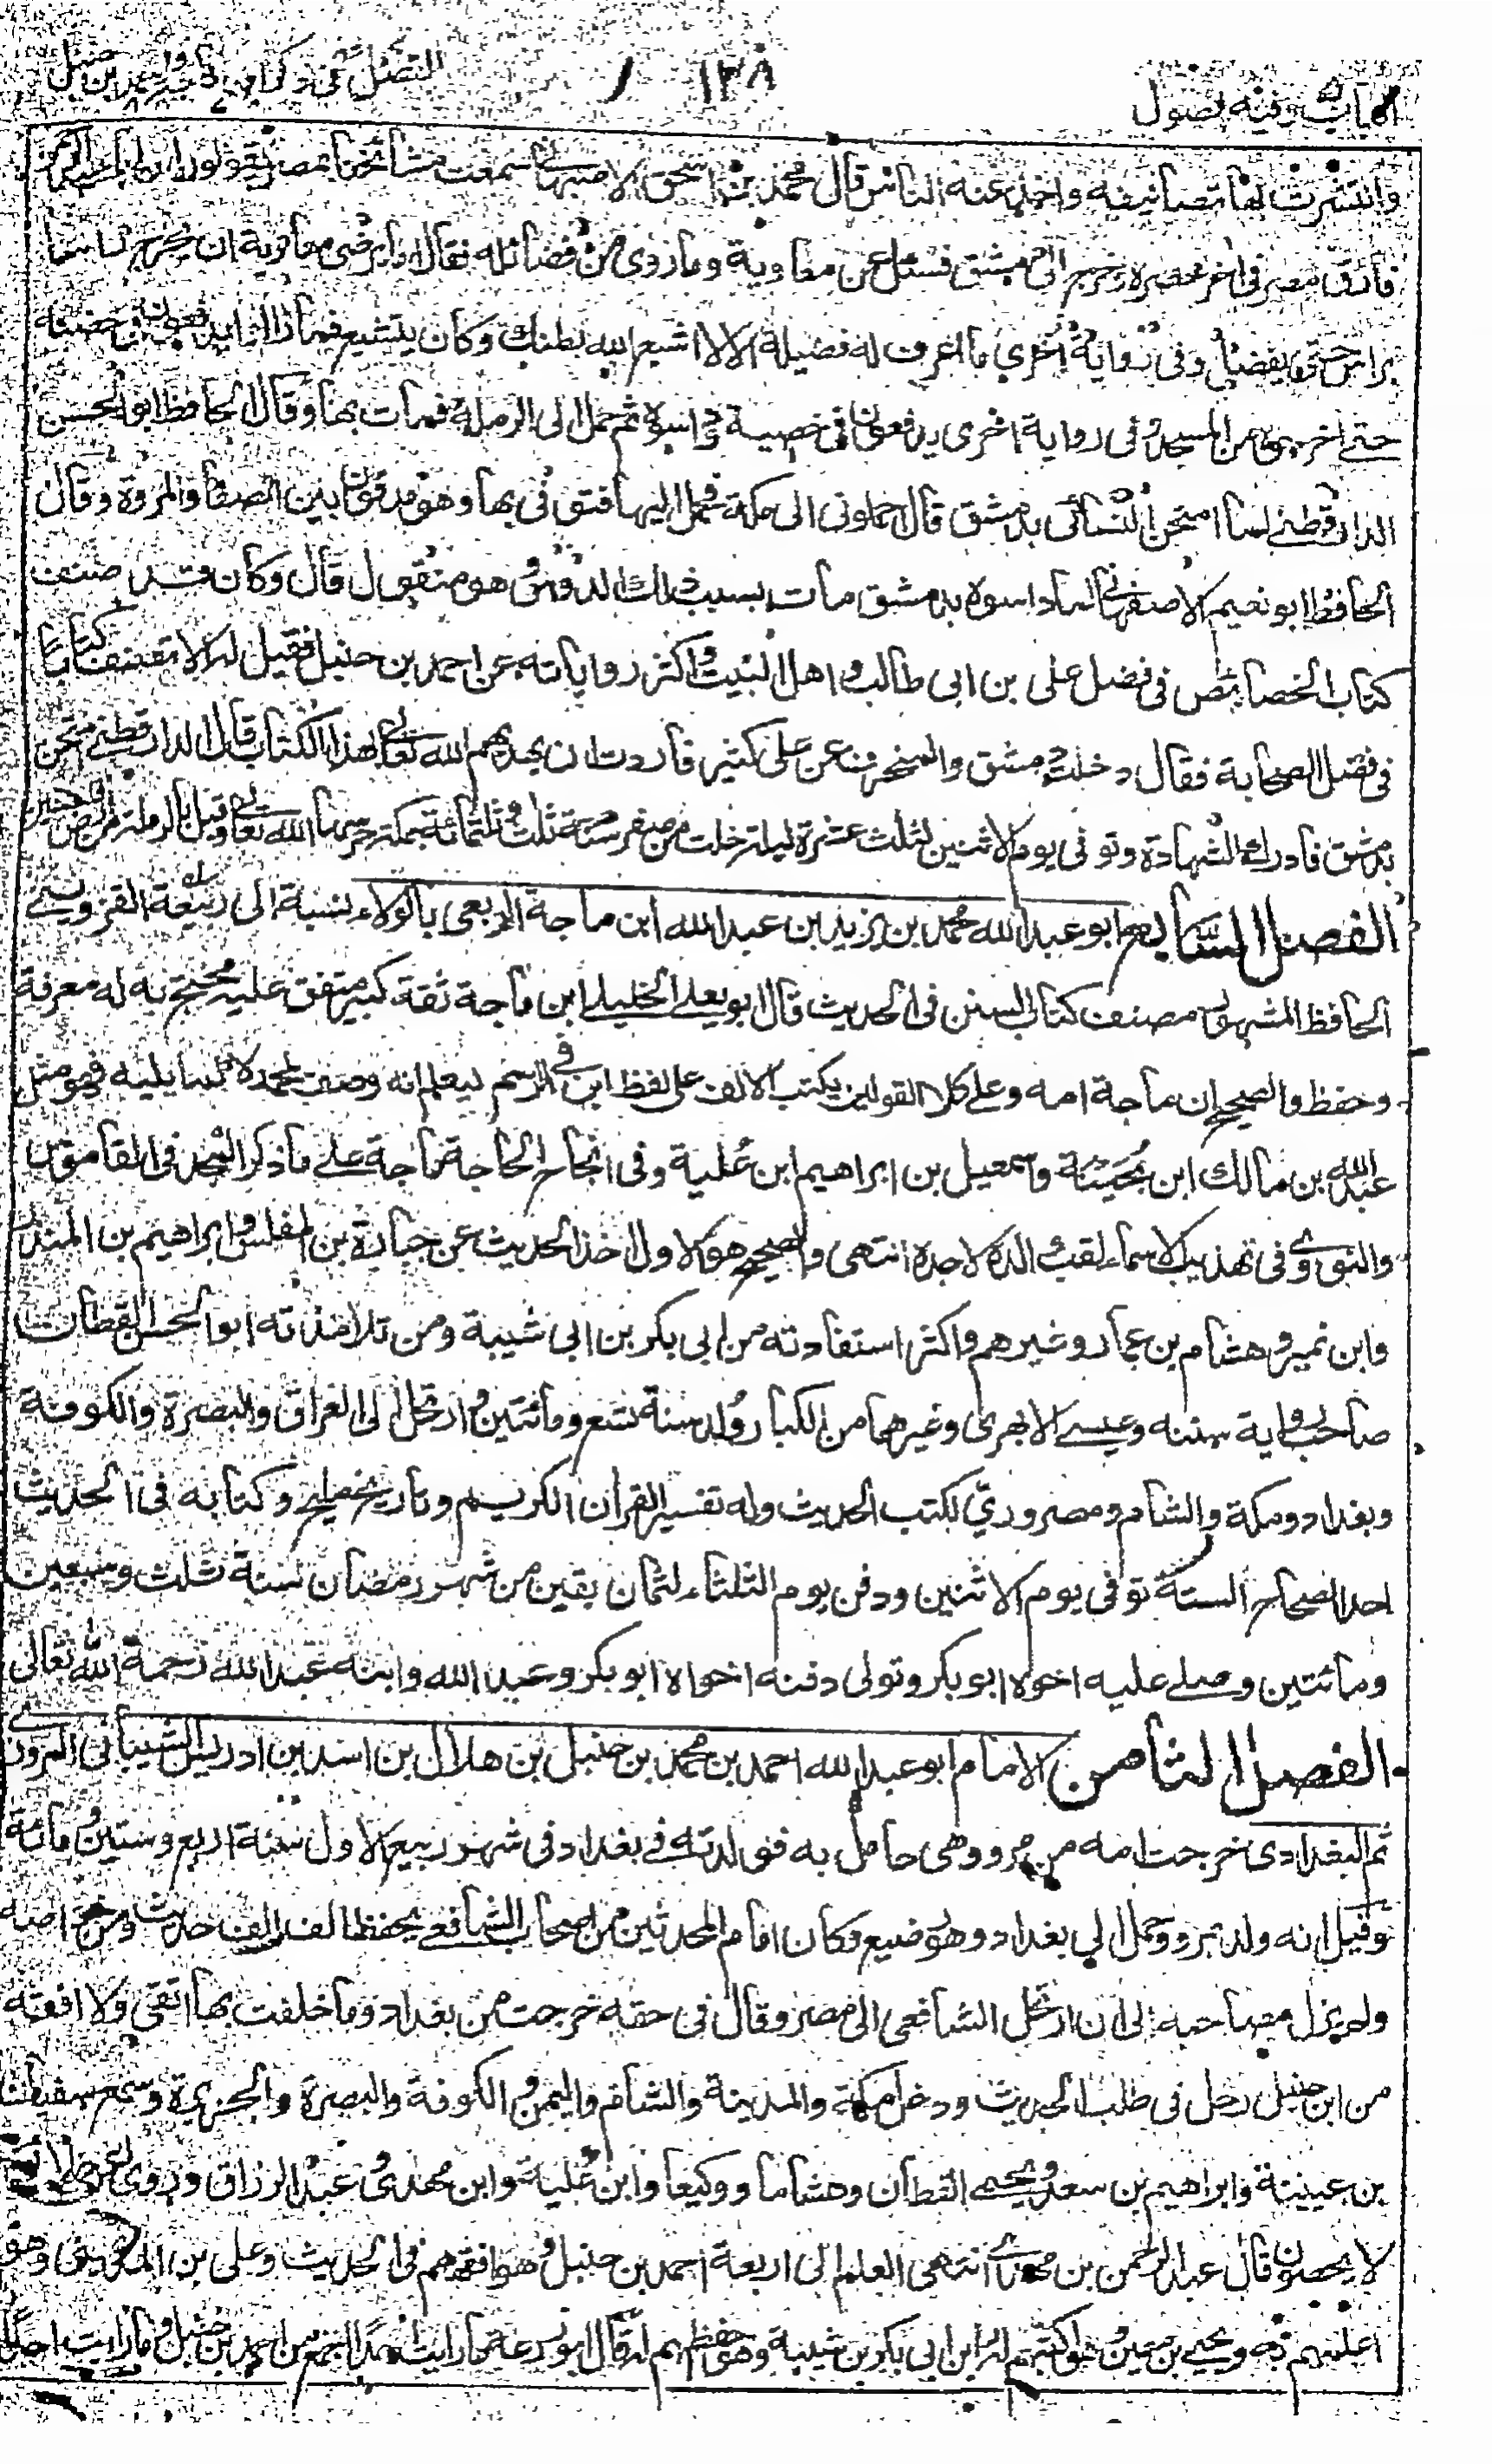 الباب وفيه فصول ١٣٨ الفصل في ذكر ابن ماجه واحمد بن حنبل
وانتشرت بها تصانيفه واخذ عنه الناس قال محمد بن اسحق الاصبهاني سمعت مشائخنا بمصر يقولون ان ابا عبد الرحمن
فارق مصر في اخر عمره وخرج الى دمشق فسئل عن معاوية وما روى من فضائله فقال اما يرضى معاوية ان يخرج راسا
براس حتى يفضل وفى رواية اخرى ما اعرف له فضيلة الا لا اشبع الله بطنك وكان يتشيع فما زالوا يدفعون فى حضنه
حتى اخرجوه من المسجد وفى رواية اخرى يدفعون فى خصيية وداسوه ثم حمل الى الرملة فمات بها وقال الحافظ ابو الحسن
الدارقطنے لما امتحن النسائى بدمشق قال احملونى الى مكة فحمل اليها فتوفى بها وهو مدفون بين الصفا والمروة وقال
الحافظ ابو نعيم الاصفهانے لما داسوه بدمشق مات بسبب ذلك الدوس وهو منقول قال وكان قد صنف
كتاب الخصائص فى فضل على بن ابى طالب واهل البيت واكثر رواياته عن احمد بن حنبل فقيل له الا تصنف كتابا
فى فضل الصحابة فقال دخلت دمشق والمنحرف عن على كثير فاردت ان يهديهم الله تعالے بهذا الكتاب قال الدارقطنے امتحن
بدمشق فادرك الشهادة وتوفى يوم الاثنين لثلث عشرة ليلة خلت من صفر سنة ثلث وثلثمائة بمكة حرسها الله تعالے وقيل بالرملة من ارض فلسطين
الفصل السابع ابو عبد الله محمد بن يزيد بن عبد الله ابن ماجة الربعى بالولاء نسبة الى ربيعة القزوينے
الحافظ المشهور مصنف كتاب السنن فى الحديث قال ابو يعلے الخليلے ابن ماجة ثقة كبير متفق عليه محتج به له معرفة
وحفظ والصحيح ان ماجة امه وعلے كلا القولين يكتب الالف على لفظ ابن فى الرسم ليعلم انه وصف لمحمد لا لما يليه فهو مثل
عبد الله بن مالك ابن بُحَيْنَة واسمعيل بن ابراهيم ابن عُلية وفى انجاح الحاجة ماجة علے ما ذكر المجد فى القاموس
والنووى فى تهذيب الاسماء لقب والده لا جده انتهى والصحيح هو الاول اخذ الحديث عن جبارة بن المغلس وابراهيم بن المنذر
وابن نمير وهشام بن عمار وغيرهم واكثر استفادته من ابى بكر بن ابى شيبة ومن تلامذته ابو الحسن القطان
صاحب رواية سننه وعيسے الابهرى وغيرهما من الكبار ولد سنة تسع ومائتين وارتحل الى العراق والبصرة والكوفة
وبغداد ومكة والشام ومصر وريّ لكتب الحديث وله تفسير القران الكريم وتاريخ مليح وكتابه فى الحديث
احد الصحاح الستة توفى يوم الاثنين ودفن يوم الثلثاء لثمان بقين من شهر رمضان سنة ثلث وسبعين
ومائتين وصلے عليه اخوه ابو بكر وتولى دفنه اخواه ابو بكر وعبد الله وابنه عبد الله رحمة الله تعالى
الفصل الثامن الامام ابو عبد الله احمد بن محمد بن حنبل بن هلال بن اسد بن ادريس الشيبانى المروزے
ثم البغدادى خرجت امه من مرو وهى حامل به فولدته فے بغداد فى شهر ربيع الاول سنة اربع وستين ومائة
وقيل انه ولد بمرو وحمل الى بغداد وهو رضيع وكان امام المحدثين من اصحاب الشافعے يحفظ الف الف حديث ومن خواصه
ولم يزل مصاحبه الى ان ارتحل الشافعى الى مصر وقال فى حقه خرجت من بغداد وما خلفت بها اتقى ولا افقه
من ابن حنبل رحل فى طلب الحديث ودخل مكة والمدينة والشام واليمن والكوفة والبصرة والجزيرة وسمع سفيان
بن عيينة وابراهيم بن سعد ويحيے القطان وهشاما ووكيعا وابن عُلية وابن مهدى وعبد الرزاق وروى عنه خلائق
لا يحصون قال عبد الرحمن بن مهدى انتهى العلم الى اربعة احمد بن حنبل وهو افقههم فى الحديث وعلى بن المدينى وهو
اعلمهم به ويحيے بن معين وهو اكتبهم له وابن ابى بكر بن شيبة وهو احفظهم له قال ابو زرعة ما رايت احدا اجمع من احمد بن حنبل وما رايت احدا